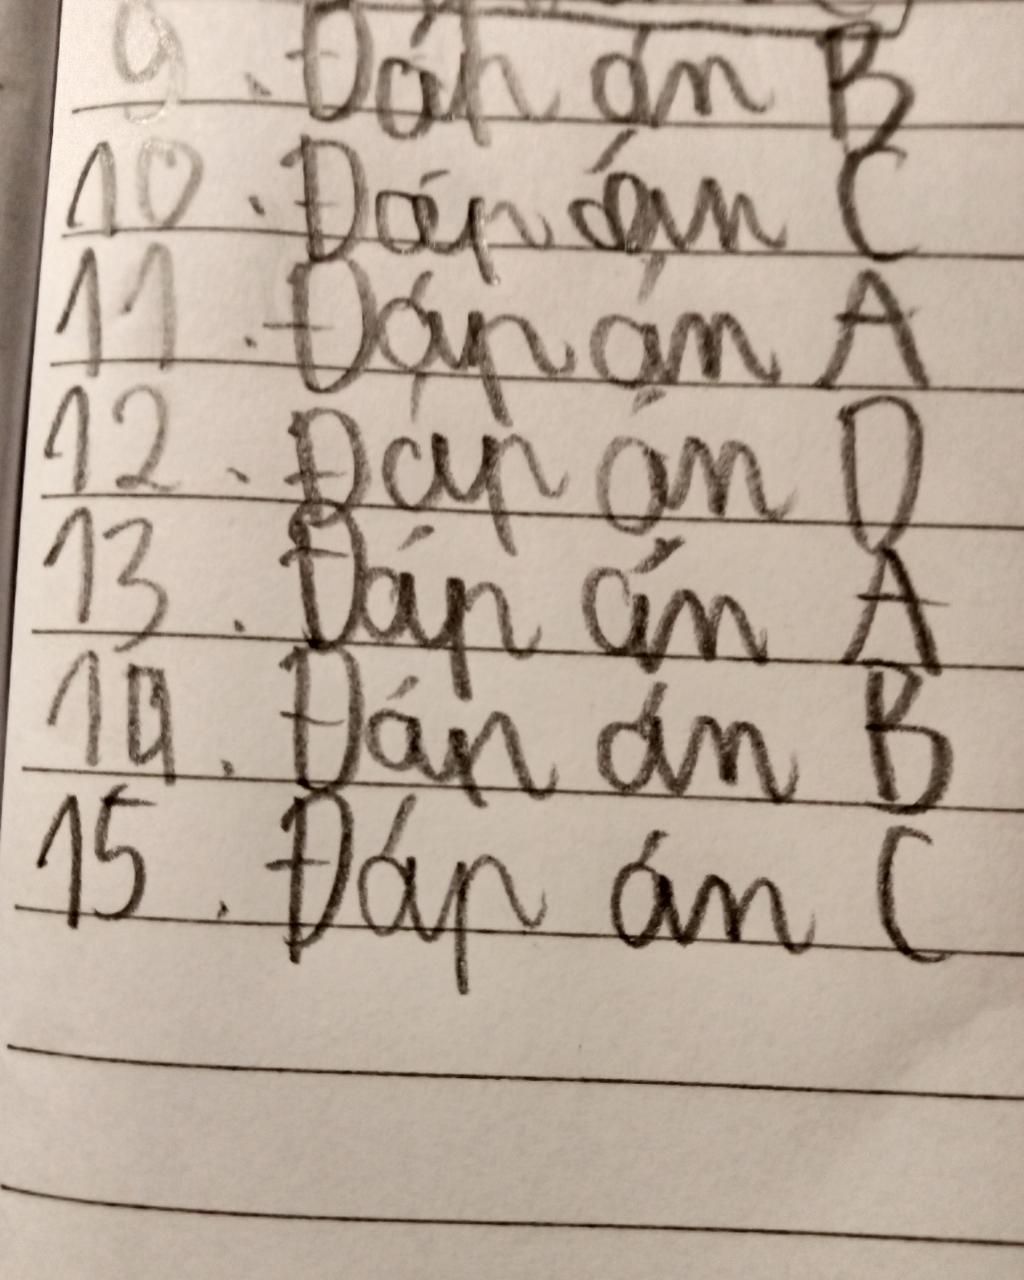 9. Đáp án B
10. Đáp án C
11. Đáp án A
12. Đáp án D
13. Đáp án A
14. Đáp án B
15. Đáp án C